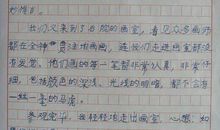 妙惟肖。
我们又来到了公院的画室，看见众多画师
都在全神贯注地画画，连我们走进画室都没
有发觉。他们画的每一笔都非常认真，非常仔
细，包括颜色的深浅，光线的明暗，都不会有
一丝一毫的马虎。
参观完毕，我轻轻地走出画室，心想：如